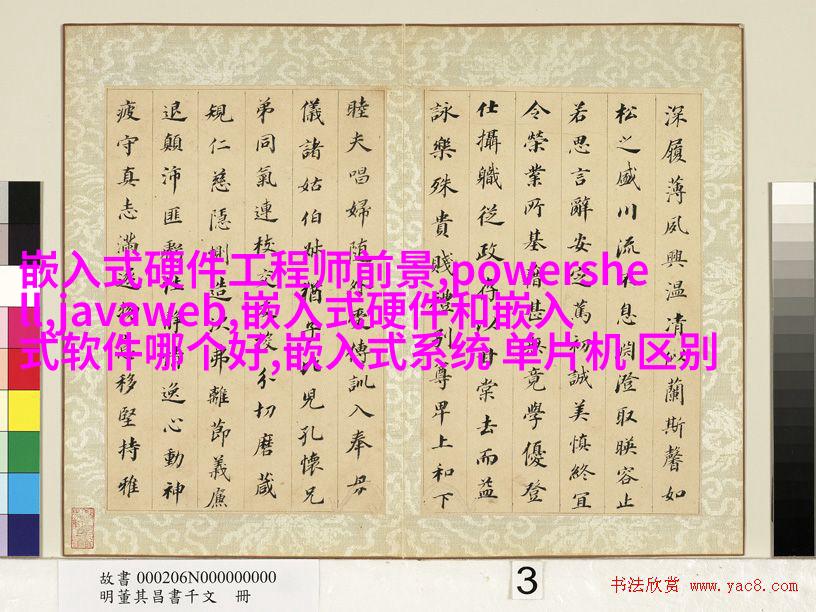 深履薄夙興温凊似蘭斯馨如
松之盛川流不息淵澄取暎容止
若思言辭安定篤初誠美慎終宜
令榮業所基籍甚無竟學優登
仕攝職從政存以甘棠去而益
詠樂殊貴賤禮別尊卑上和下
睦夫唱婦随外受傅訓入奉母
儀諸姑伯叔猶子比兒孔懷兄
弟同氣連枝交友投分切磨箴
規仁慈隱惻造次弗離節義廉
退顛沛匪虧性静情逸心動神
疲守真志滿逐物意移堅持雅
嵌入式硬件工程师前景,powershe
ll,javaweb,嵌入式硬件和嵌入
式软件哪个好,嵌入式系统 单片机 区别
故書 000206N000000000
明董其昌書千文 冊
3
书法欣赏 www.yac8.com